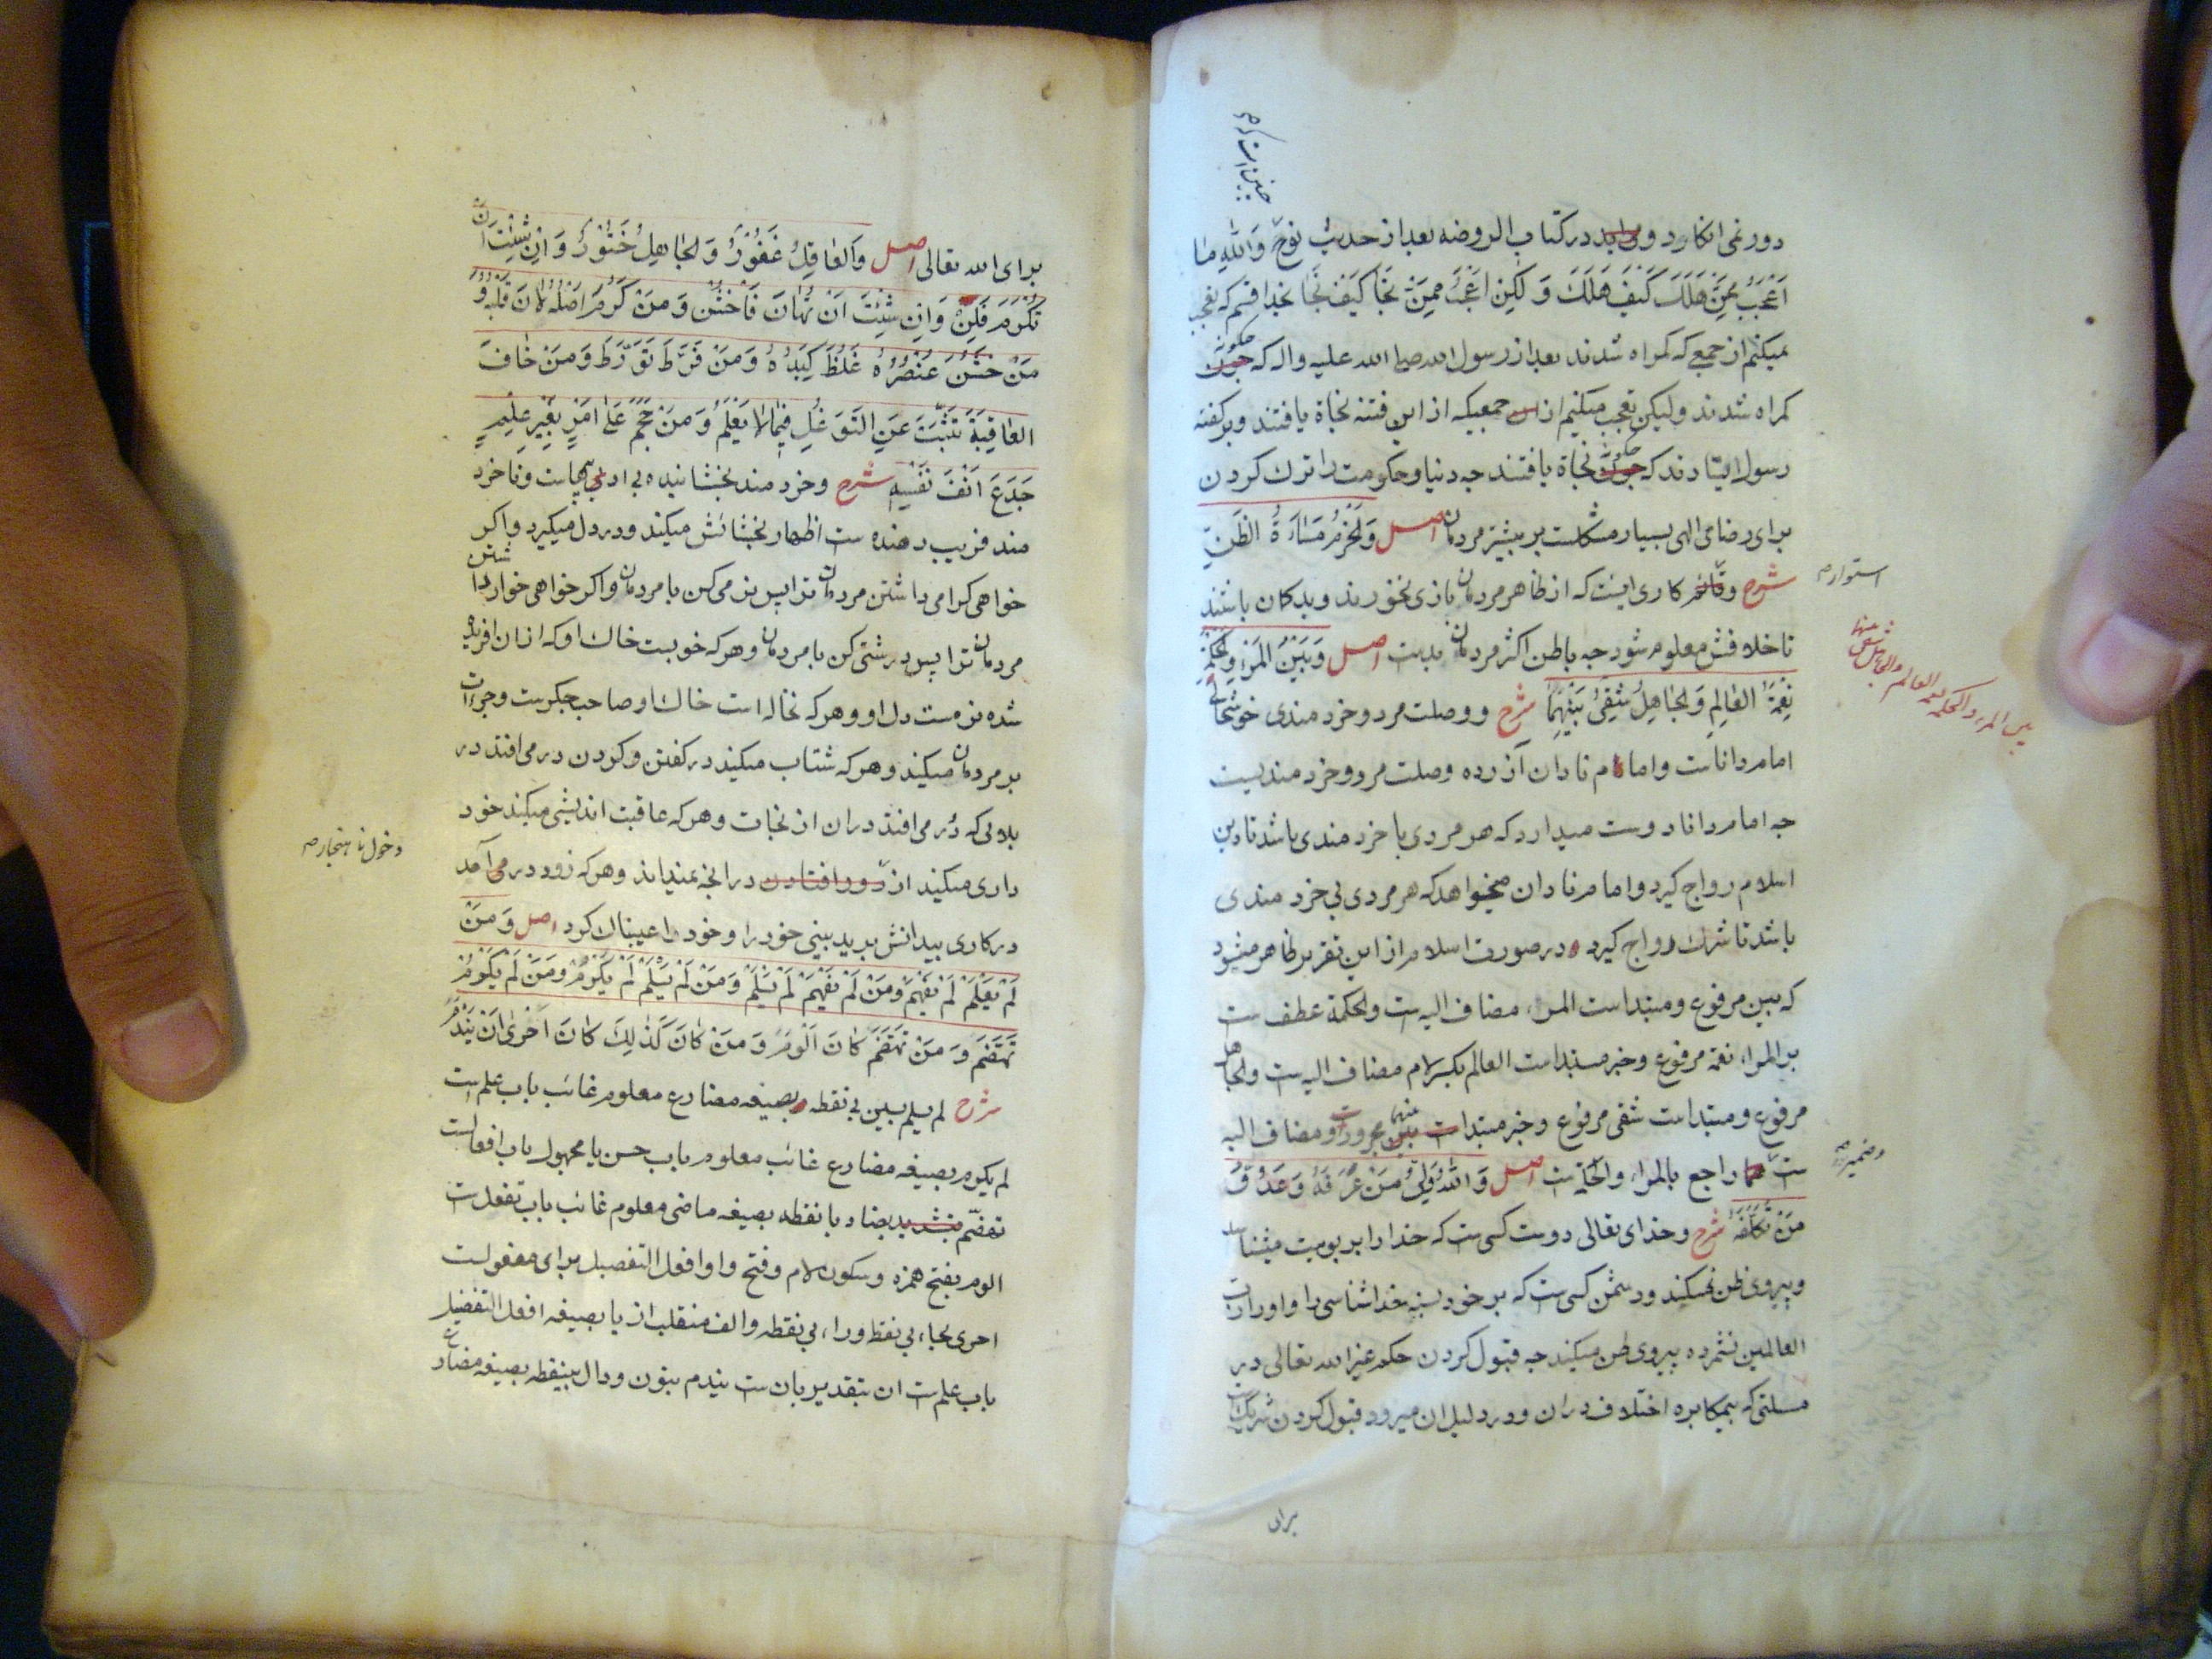 چنین است که در
دور نمی انکارد و در کتاب الروضه بعد از حدیث نوح وَاللهِ مٰا
اَعْجَبُ مِمَّنْ هَلَكَ كَيْفَ هَلَكَ وَ لٰكِنْ اَعْجَبُ مِمَّنْ نَجَا كَيْفَ نَجَا بخدا قسم که تعجب
نمیکنم از جمعی که کمراه شدند بعد از رسول الله صلی الله علیه واله که چکونه
کمراه شدند ولیکن تعجب میکنیم از جمعیکه از این فتنه نجاة یافتند وبر کفته
رسول ایستادند که چکونه نجاة یافتند چه دنیا وحکومت را ترک کردن
برای رضای الهی بسیار مشکلست بر بیشتر مردمان اصل وَالْحَزْمُ مَسٰاءَةُ الظَّنِّ
شرح و کاری اینست که از ظاهر مردمان بازی نخورند وبدکان باشند
استوار
تا خلافش معلوم شود چه باطن اکثر مردمان بدست اصل وَبَيْنَ الْمَرْءِ وَالْحِكْمَةِ
نِعْمَةُ الْعٰالِمِ وَالْجٰاهِلُ شَقِيٌّ بَيْنَهُمٰا شرح ووصلت مرد وخرد مندی خوشحالی
بین المرء والحکمة نعمة العالم والجاهل شقی بینهما
امام داناست واما امام نادان آزرده وصلت مرد وخرد مندیست
چه امام دانا دوست میدارد که هر مردی با خرد مندی باشد تا دین
اسلام رواج کیرد واما امام نادان میخواهد که هر مردی بی خرد مندی
باشد تا شرک رواج کیرد در صورت اسلام از این تقریر ظاهر میشود
که بین مرفوع ومبتداست المرء مضاف الیه ست والحکمة عطف ست
بر المرء نعمة مرفوع وخبر مبتداست العالم بکسر لام مضاف الیه ست والجاهل
مرفوع ومبتداست شقی مرفوع وخبر مبتداست بینهما مجرورست ومضاف الیه
وضمیر
ست راجع بالمرء والحکمة ست اصل وَاللهُ وَلِيُّ مَنْ عَرَفَهُ وَعَدُوُّ
مَنْ تَكَلَّفَهُ شرح وخدای تعالی دوست کسی ست که خدا را بربوبیت میشناسد
وپیروی ظن نمیکند ودشمن کسی ست که بر خود بسته خداشناسی را واورا رب
العالمین نشمرده پیروی ظن میکند چه قبول کردن حکم غیر الله تعالی در
مسئلتی که بیمکابره اختلاف دران ودر دلیل ان میرود قبول کردن شریک است
برای
برای الله تعالی اصل وَالْعٰاقِلُ غَفُورٌ وَالْجٰاهِلُ خَتُورٌ وَاِنْ شِئْتَ اَنْ
تُكْرَمَ فَلِنْ وَاِنْ شِئْتَ اَنْ تُهٰانَ فَاخْشُنْ وَمَنْ كَرُمَ اَصْلُهُ لٰانَ قَلْبُهُ وَ
مَنْ خَشُنَ عُنْصُرُهُ غَلُظَ كَبِدُهُ وَمَنْ فَرَّطَ تَوَرَّطَ وَمَنْ خٰافَ
الْعٰاقِبَةَ تَثَبَّتَ عَنِ التَّوَغُّلِ فِيمٰا لاٰ يَعْلَمُ وَمَنْ هَجَمَ عَلىٰ اَمْرٍ بِغَيْرِ عِلْمٍ
جَدَعَ اَنْفَ نَفْسِهِ شرح وخرد مند بخشاننده بی ادبی هاست وناخرد
مند فریب دهنده ست اظهار بخشائش میکند ودر دل میکیرد واکر
خواهی کرامی داشتن مردمان ترا پس نرمی کن با مردمان واکر خواهی خوار داشتن
مردمان ترا پس درشتی کن با مردمان وهر که خوبست خاک او که ازان افریده
شده نرمست دل او وهر که نخاله است خاک او صاحب جکرست وجرءات
بر مردمان میکند وهر که شتاب میکند در کفتن وکردن در می افتد در
بلائی که دُر می افتد دران از نجات وهر که عاقبت اندیشی میکند خود
داری میکند از دور افتادن در انچه نمیداند وهر که زود در می آمد
دخول ناهنجار
در کاری بیدانش برید بینی خود را وخود را عیبناک کرد اصل وَمَنْ
لَمْ يَعْلَمْ لَمْ يَفْهَمْ وَمَنْ لَمْ يَفْهَمْ لَمْ يَسْلَمْ وَمَنْ لَمْ يَسْلَمْ لَمْ يَكْرُمْ وَمَنْ لَمْ يَكْرُمْ
تَهَضَّمَ وَمَنْ تَهَضَّمَ كٰانَ اَلْوَمَ وَمَنْ كٰانَ كَذٰلِكَ كٰانَ اَحْرىٰ اَنْ يَنْدَمَ
شرح لم یسلم بسین بی نقطه بصیغه مضارع معلوم غائب باب علم است
لم یکرم بصیغه مضارع غائب معلوم باب حسن یا مجهول باب افعالست
تهضّم بتشدید بضاد با نقطه بصیغه ماضی معلوم غائب باب تفعل ست
الوم بفتح همزه وسکون لام وفتح واو افعل التفضیل برای مفعولست
احری بحاء بی نقطه وراء بی نقطه والف منقلب از یا بصیغه افعل التفضیل
باب علم ست ان بتقدیر بان ست یندم بنون ودال بینقطه بصیغه مضارع